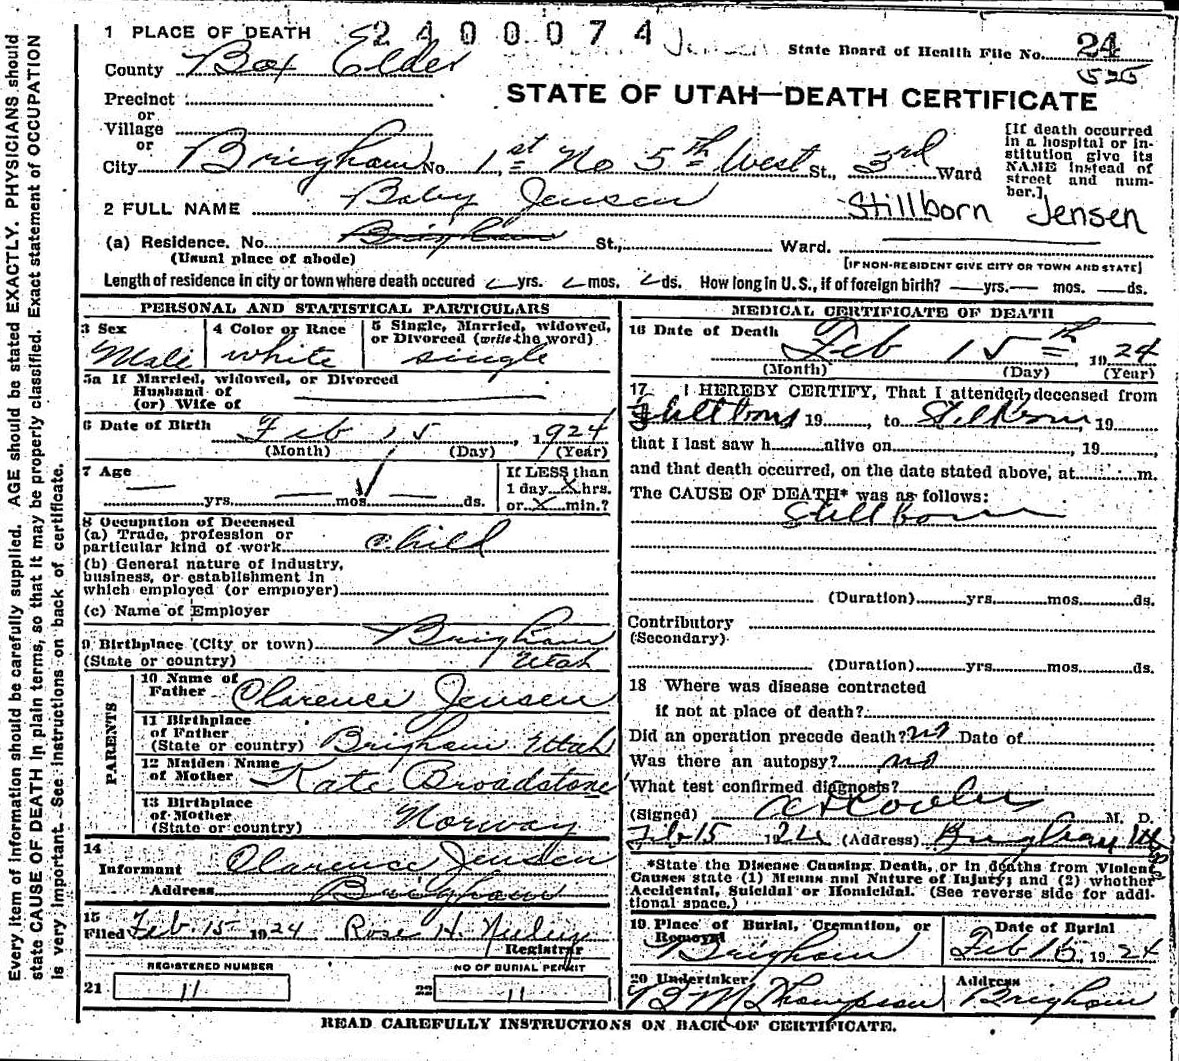 Every item of information should be carefully supplied. AGE should be stated EXACTLY. PHYSICIANS should
state CAUSE OF DEATH in plain terms, so that it may be properly classified. Exact statement of OCCUPATION
is very important. See instructions on back of certificate.
1 PLACE OF DEATH 2400074 Jensen
State Board of Health File No. 24
525
County Box Elder
Precinct
or
Village
or
STATE OF UTAH—DEATH CERTIFICATE
City Brigham No. 1st No 5th West St., 3rd Ward
[If death occurred
in a hospital or in-
stitution give its
NAME instead of
street and num-
ber.]
2 FULL NAME Baby Jensen Stillborn Jensen
(a) Residence. No. Brigham St., Ward.
(Usual place of abode)
[IF NON-RESIDENT GIVE CITY OR TOWN AND STATE]
Length of residence in city or town where death occured yrs. mos. ds. How long in U.S., if of foreign birth? — yrs. — mos. — ds.
PERSONAL AND STATISTICAL PARTICULARS
3 Sex
Male
4 Color or Race
white
5 Single, Married, widowed,
or Divorced (write the word)
single
5a If Married, widowed, or Divorced
Husband of
(or) Wife of
6 Date of Birth Feb 15, 1924
(Month) (Day) (Year)
7 Age
— yrs. — mos. — ds.
If LESS than
1 day X hrs.
or X min.?
8 Occupation of Deceased
(a) Trade, profession or
particular kind of work child
(b) General nature of industry,
business, or establishment in
which employed (or employer)
(c) Name of Employer
9 Birthplace (City or town) Brigham
(State or country) Utah
PARENTS
10 Name of
Father Clarence Jensen
11 Birthplace
of Father
(State or country) Brigham Utah
12 Maiden Name
of Mother Kate Broadstone
13 Birthplace
of Mother
(State or country) Norway
14
Informant Clarence Jensen
Address Brigham
15
Filed Feb. 15 1924 Rose H.
Registrar
REGISTERED NUMBER
21 11
NO OF BURIAL PERMIT
22 11
MEDICAL CERTIFICATE OF DEATH
16 Date of Death Feb 15th, 1924
(Month) (Day) (Year)
17 I HEREBY CERTIFY, That I attended deceased from
Stillborn 19 , to Stillborn, 19
that I last saw h alive on , 19 ,
and that death occurred, on the date stated above, at m.
The CAUSE OF DEATH* was as follows:
Stillborn
(Duration) yrs. mos. ds.
Contributory
(Secondary)
(Duration) yrs. mos. ds.
18 Where was disease contracted
if not at place of death?
Did an operation precede death? no Date of
Was there an autopsy? no
What test confirmed diagnosis?
(Signed) M. D.
Feb 15 1924 (Address) Brigham
*State the Disease Causing Death, or in deaths from Violent
Causes state (1) Means and Nature of Injury; and (2) whether
Accidental, Suicidal or Homicidal. (See reverse side for addi-
tional space.)
19 Place of Burial, Cremation, or
Removal
Brigham
Date of Burial
Feb 15, 1924
20 Undertaker
Thompson
Address
Brigham
READ CAREFULLY INSTRUCTIONS ON BACK OF CERTIFICATE.